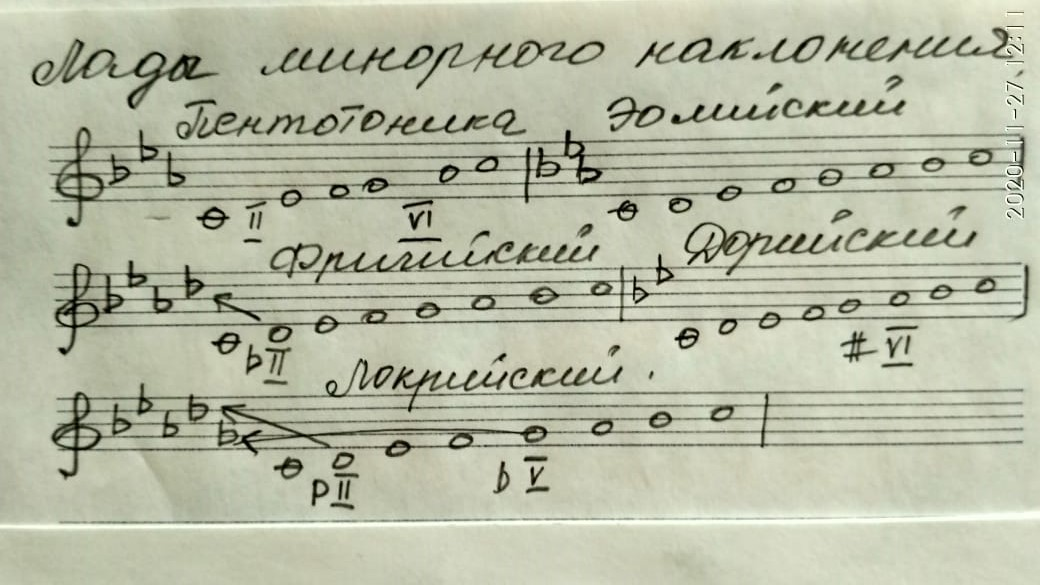 Лады минорного наклонения
Пентотоника Эолийский
II VI
Фригийский Дорийский
♭II # VI
Локрийский.
♭II ♭V
2020-11-27 12:11